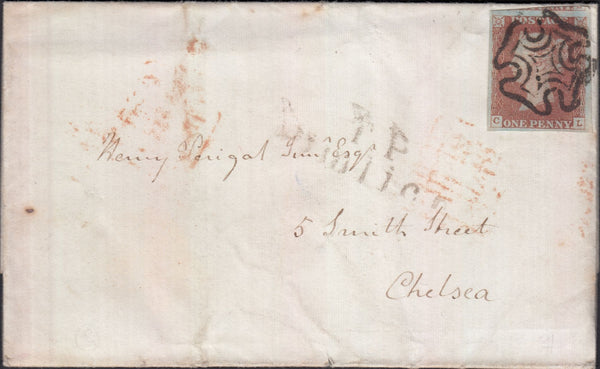 POSTAGE
C L
ONE PENNY
T P
Henry Perigal Junr Esqr
5 Smith Street
Chelsea